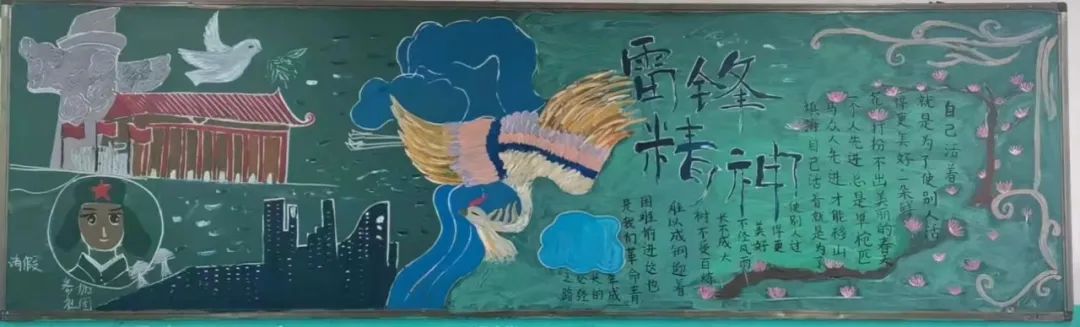 雷锋
精神
自己活着
就是为了使别人活
得更美好一朵鲜
花打扮不出美丽的春天
一个人先进总是单枪匹
马众人先进才能移山
填海自己活着就是为了
使别人过
得更
美好
不经风雨
长不成大
树不受百炼
难以成钢迎着
困难前进这也
是我们革命青
年成
长的
必经
之路
请假